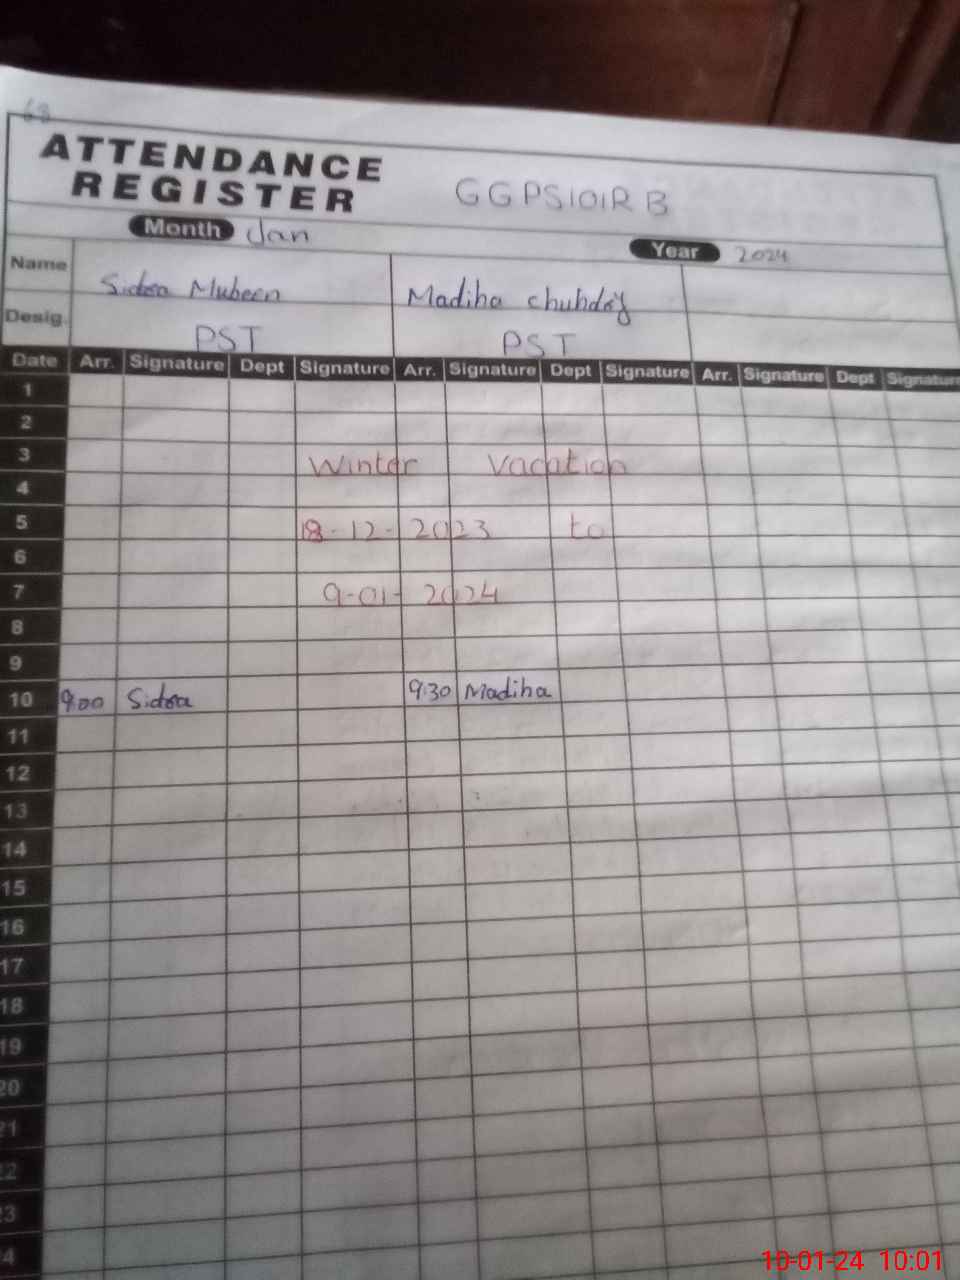 68
ATTENDANCE
REGISTER
GGPS101RB
Month Jan
Year 2024
Name Sidra Mubeen Madiha chuhdry
Desig. PST PST
Date Arr. Signature Dept Signature Arr. Signature Dept Signature Arr. Signature Dept Signature
1
2
3 Winter Vacation
4
5 18-12-2023 to
6
7 9-01-2024
8
9
10 9:00 Sidra 9:30 Madiha
11
12
13
14
15
16
17
18
19
20
21
22
23
24
10-01-24 10:01